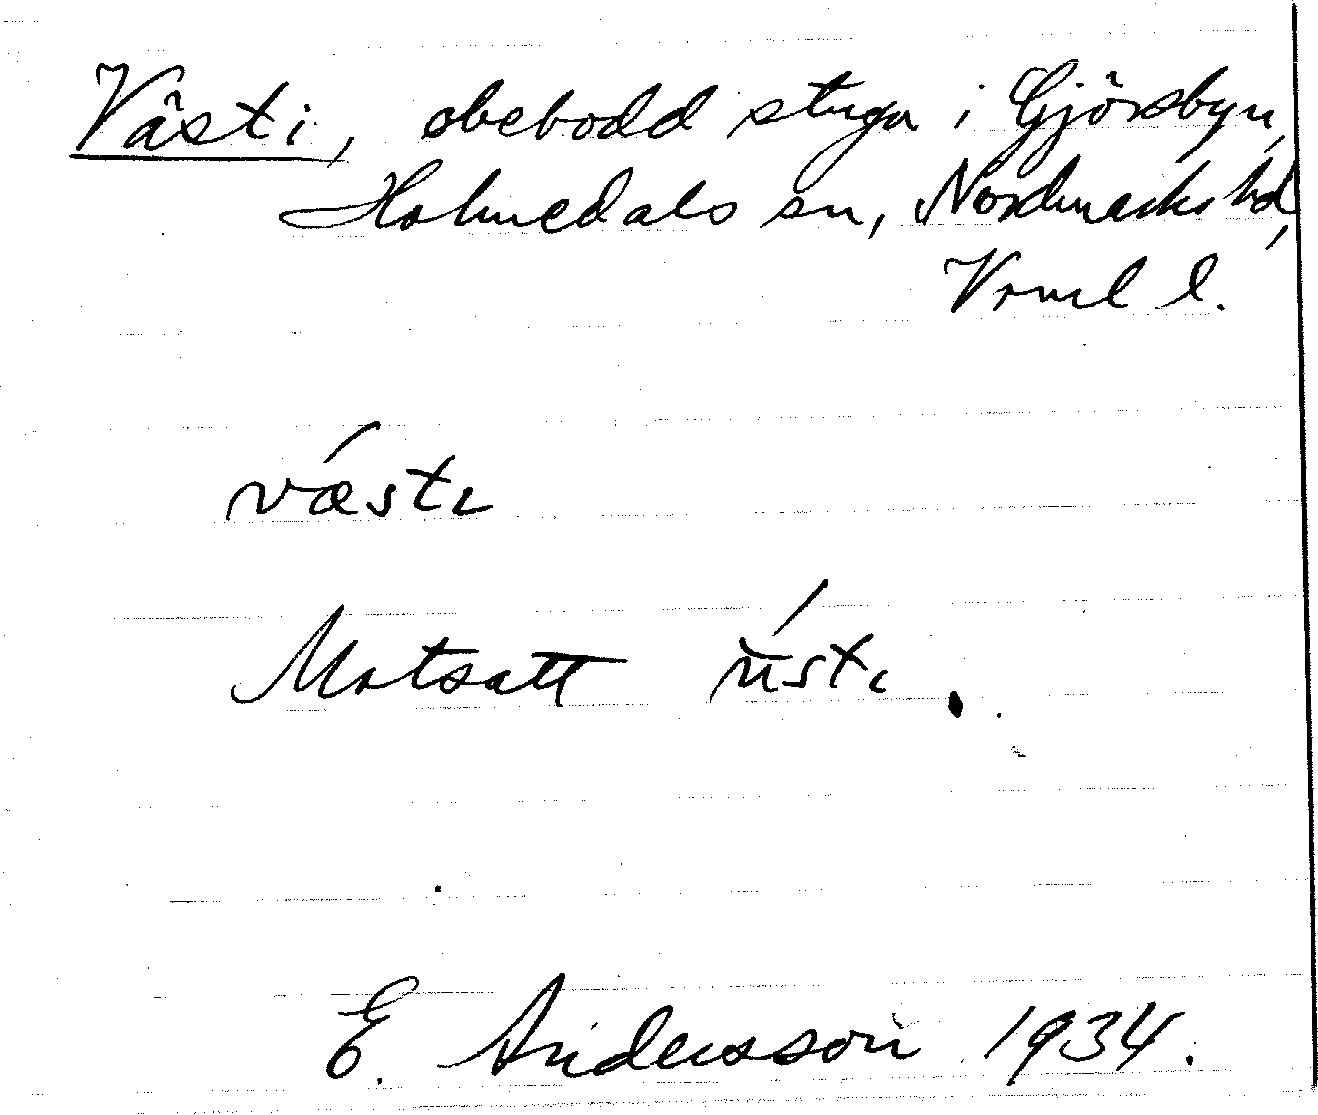 Västi, obebodd stuga i Gjörsbyn,
Holmedals sn, Nordmarks hd,
Vrml l.
vǽstɩ
Motsatt
E. Andersson 1934.